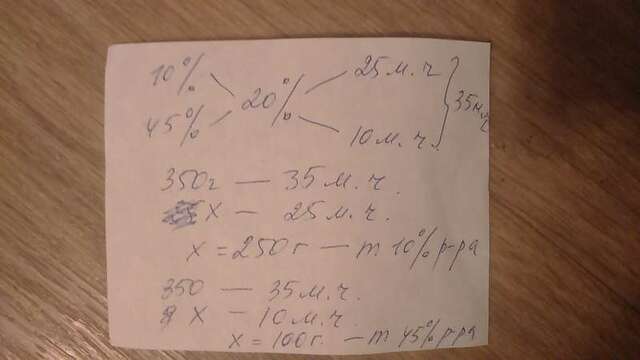 10% 25 м.ч
20% 35 м.ч
45% 10 м.ч.
350г — 35 м.ч.
x — 25 м.ч.
x = 250 г — m 10% р-ра
350 — 35 м.ч.
x — 10 м.ч.
x = 100 г. — m 45% р-ра